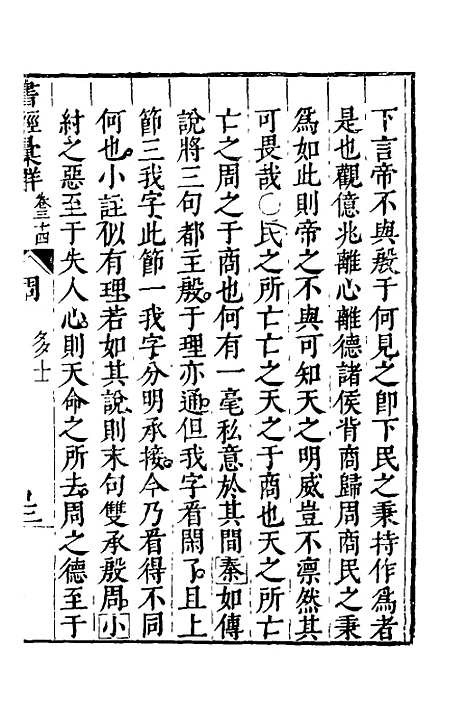 下言帝不與殷于何見之卽下民之秉持作爲者
是也觀億兆離心離德諸侯背商歸周商民之秉
爲如此則帝之不與可知天之明威豈不凛然其
可畏哉○民之所亡亡之天之于商也天之所亡
亡之周之于商也何有一毫私意於其間秦如傳
說將三句都主殷于理亦通但我字看閑了且上
節三我字此節一我字分明承接今乃看得不同
何也小註似有理若如其說則末句雙承殷周小
紂之惡至于失人心則天命之所去周之德至于
書經彙解 卷三十四 周 多士 十三